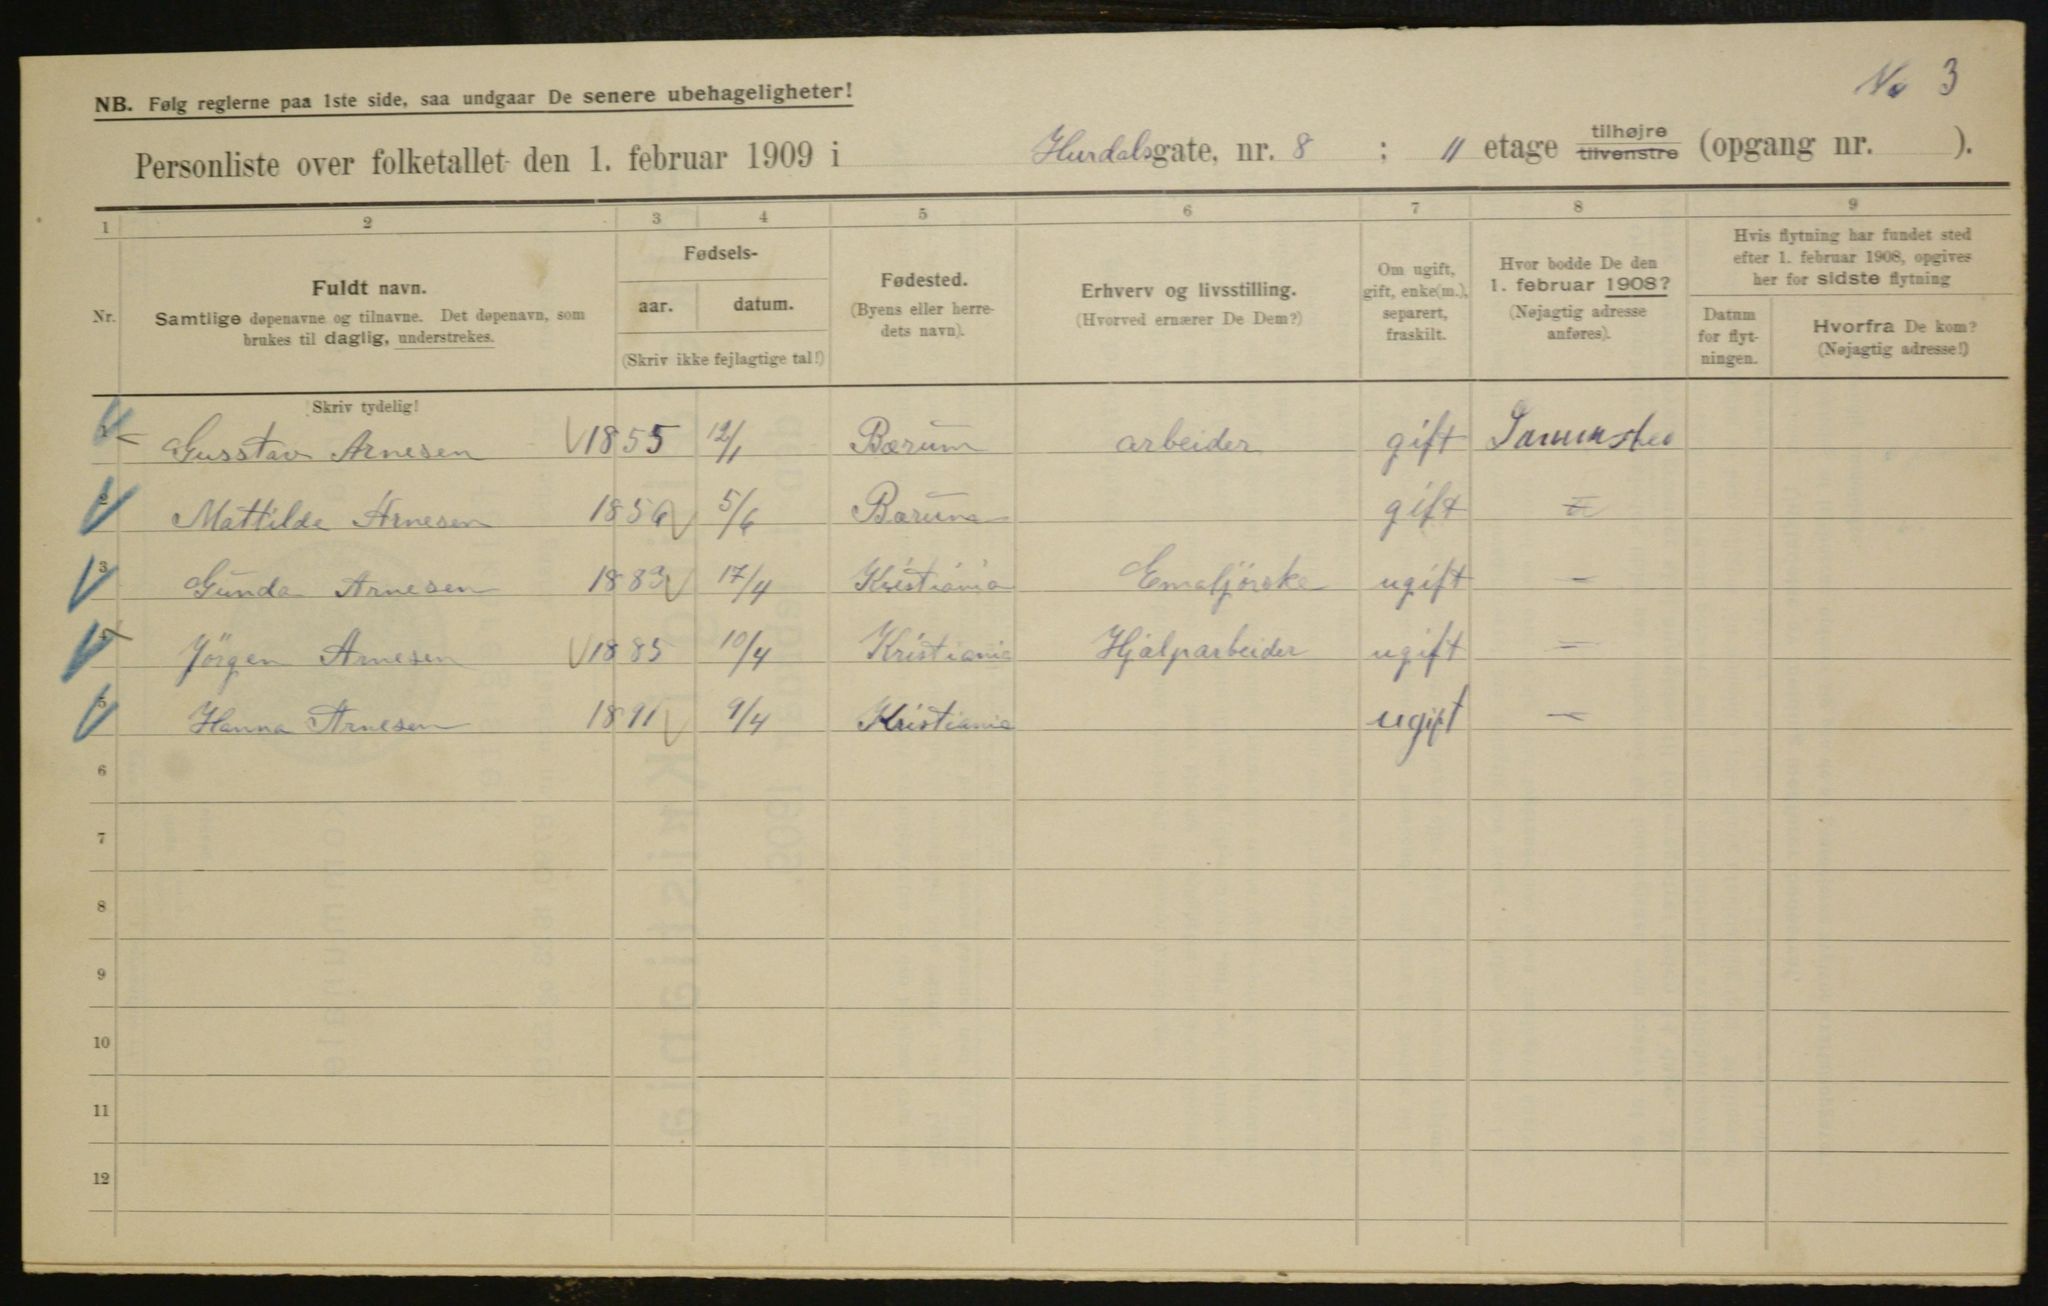 No 3
NB. Følg reglerne paa 1ste side, saa undgaar De senere ubehageligheter!
Personliste over folketallet den 1. februar 1909 i Hurdalsgate, nr. 8 ; II etage tilhøjre tilvenstre (opgang nr. ).
1 2 3 4 5 6 7 8 9
Nr.
Fuldt navn.
Samtlige døpenavne og tilnavne. Det døpenavn, som
brukes til daglig, understrekes.
Fødsels-
aar. datum.
(Skriv ikke fejlagtige tal!)
Fødested.
(Byens eller herre-
dets navn).
Erhverv og livsstilling.
(Hvorved ernærer De Dem?)
Om ugift,
gift, enke(m.),
separert,
fraskilt.
Hvor bodde De den
1. februar 1908?
(Nøjagtig adresse
anføres).
Hvis flytning har fundet sted
efter 1. februar 1908, opgives
her for sidste flytning
Datum
for flyt-
ningen.
Hvorfra De kom?
(Nøjagtig adresse!)
Skriv tydelig!
Gusstav Arnesen 1855 12/1 Bærum arbeider gift Sammsted
2 Mattilde Arnesen 1856 5/6 Bærum gift =
3 Gunda Arnesen 1883 17/4 Kristiania ugift –
4 Jörgen Arnesen 1885 10/4 Kristiania Hjalparbeider ugift =
5 Hanna Arnesen 1891 9/4 Kristiania ugift –
6
7
8
9
10
11
12